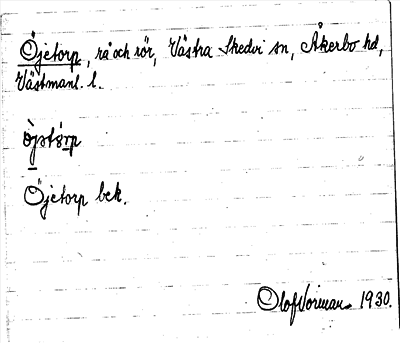 Öjetorp, rå och rör, Västra Skedvi sn, Åkerbo hd,
Västmanl. l.
Öjetorp bek.
Olof Norman 1930.